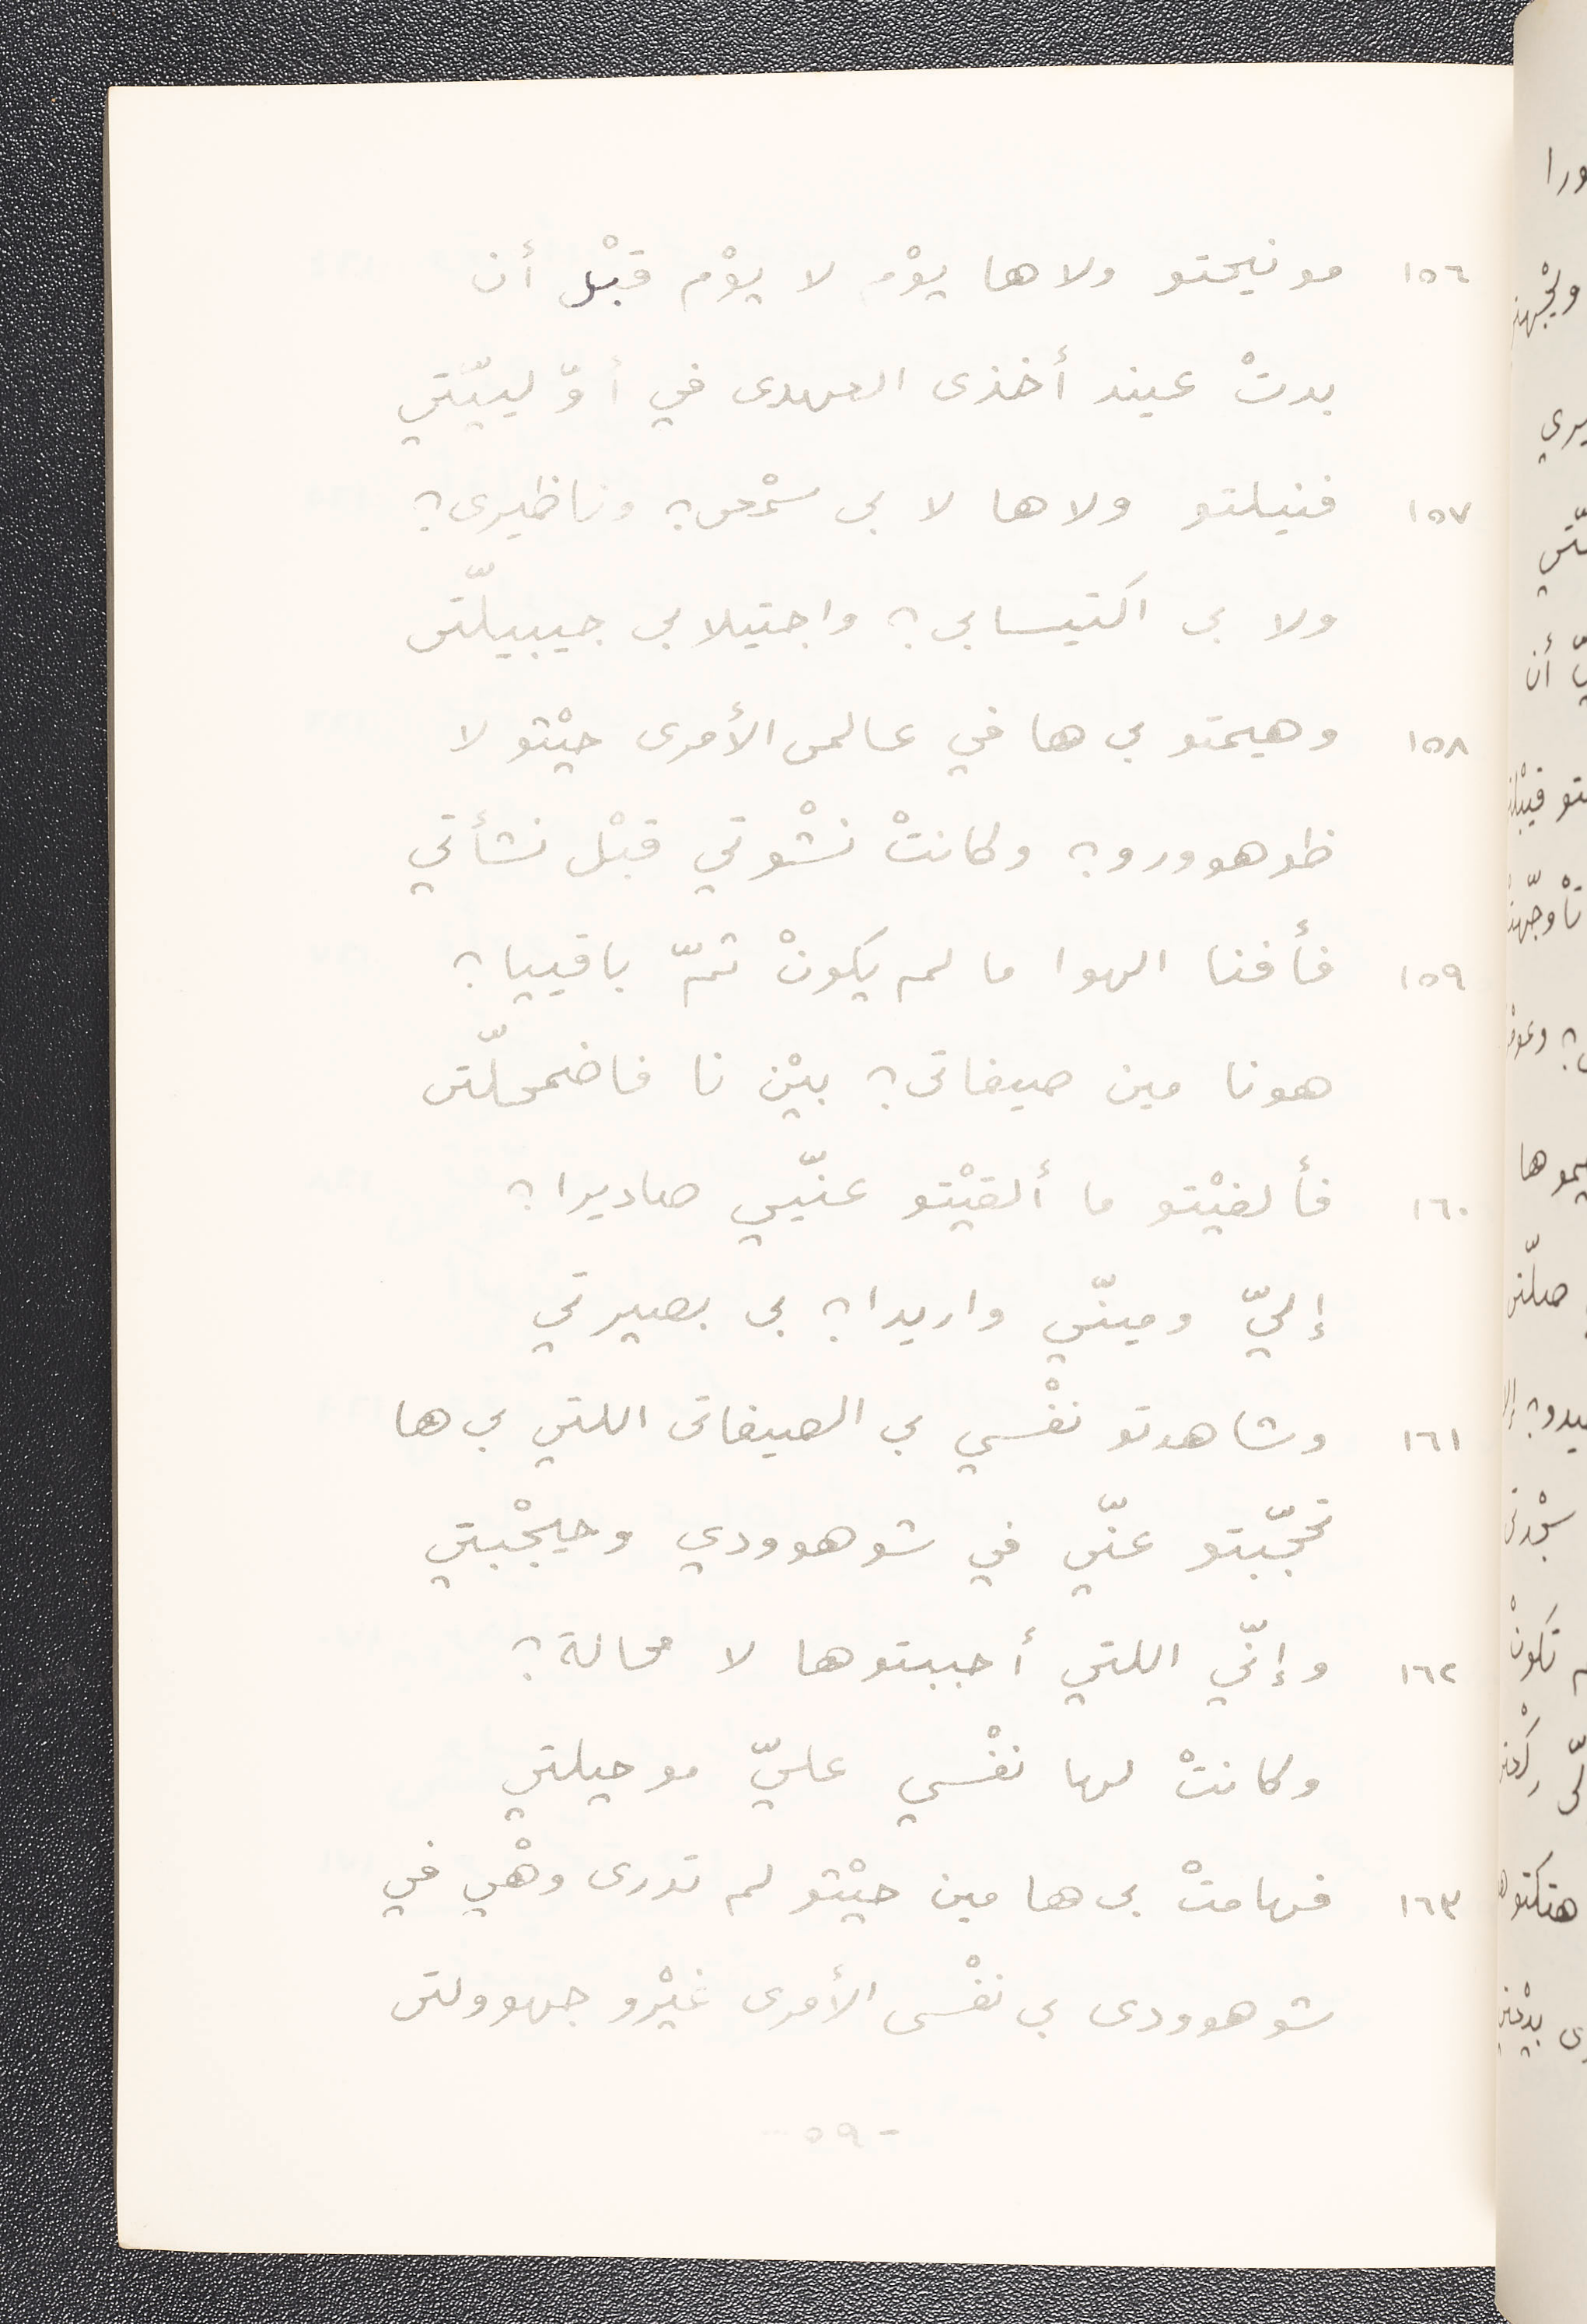 ١٥٦ مونيحتو ولاها يوْم لا يوْم قبْل أن
بدتْ عيند أخذى العهدى في أوّليـيّتي
١٥٧ فنيلتو ولاها لا بى سمْعى؟ وناظيرى؟
ولا بى اكتيسابي؟ واجتيلابي جيبيلّتى
١٥٨ وهيمتو بى ها في عالمى الأمرى حيْتو لا
ظوهوورو؟ وكانتْ نشْوتي قبْل نشأتي
١٥٩ فأفنا الهوا ما لم يكونْ تمّ باقييا؟
هونا مين صيفاتى؟ بيْن نا فاضمحلّتى
١٦٠ فألفيْتو ما ألقيْتو عنّيي صاديرا؟
إليّ ومينّي واريدا؟ بى بصيرتي
١٦١ وشاهدتو نفْسي بي الصيفاتى اللتي بي ها
تحجّبتو عنّي في شوهوودي وحيجْبتي
١٦٢ وإنّي اللتي أحببتوها لا محالة؟
وكانتْ لها نفْسي عليّ موحيلتي
١٦٣ فهامتْ بى ها مين حيْتو لم تدرى وهْي في
شوهوودى بي نفْسى الأمرى غيْرو جهوولتى
- ٥٩ -